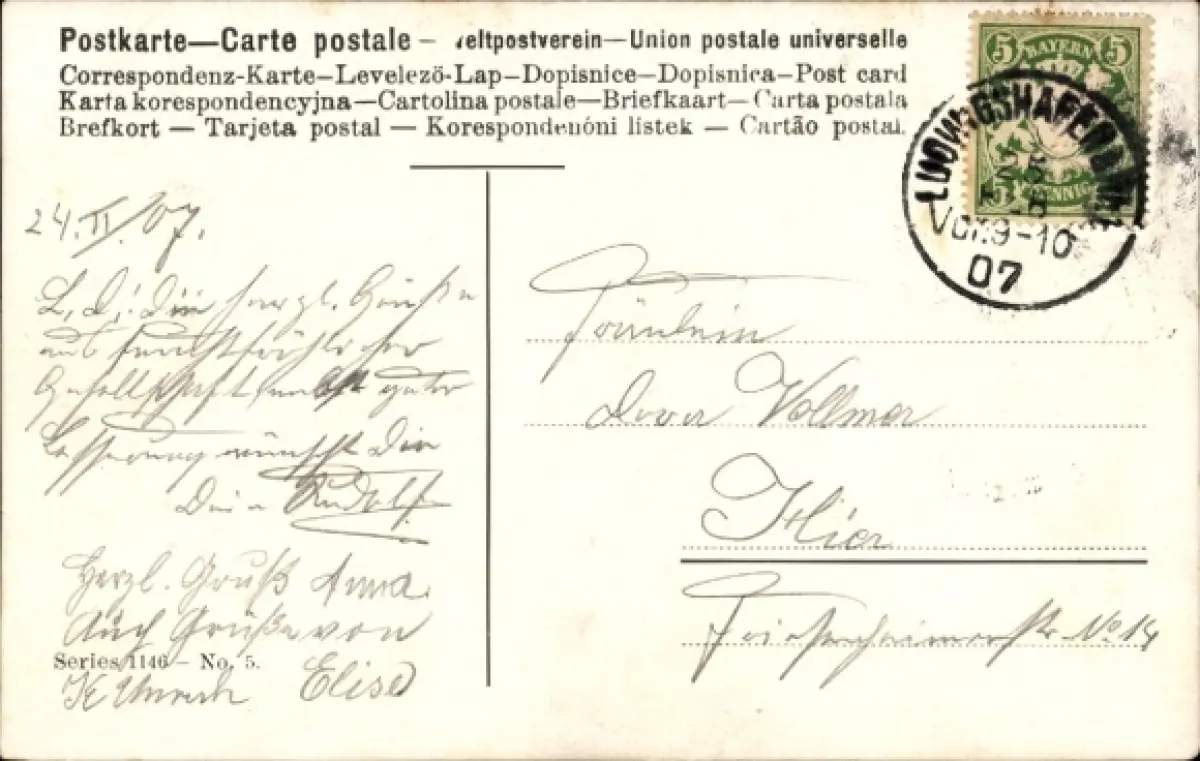 Postkarte—Carte postale – eltpostverein—Union postale universelle
Correspondenz-Karte—Levelező-Lap—Dopisnice—Dopisnica—Post card
Karta korespondencyjna—Cartolina postale—Briefkaart—Carta postala
Brefkort — Tarjeta postal — Korespondenční listek — Cartão postal.
5 BAYERN 5
5 PFENNIG
LUDWIGSHAFEN
25
Vor.9-10
07
24.II.07.
L. D.! Die herzl. Grüße
aus
Gesellschaft nebst guter
wünscht Dir
Dein Rudolf
Herzl. Gruß Anna.
Auch Grüße von
Series 1146 – No. 5.
Elise
Fräulein
Dora Vollmer
Hier
Friesenheimerstr. No 14